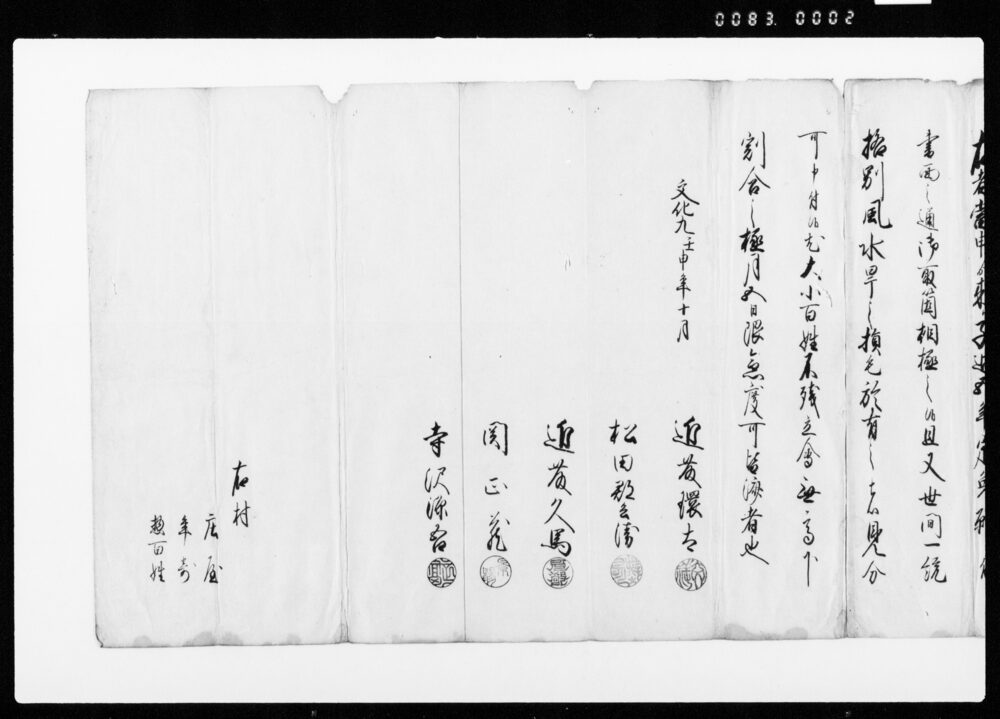 0083.0002
右者当申
書面之通御取箇相極之候且又世間一統
格別風水旱之損毛於有之者見分
可申付候尤大小百姓不残立会無高下
割合之極月五日限急度可皆済者也
文化九壬申年十月
近藤環
松田
近藤久馬
関正蔵
寺沢源吾
右村
庄屋
年寄
惣百姓